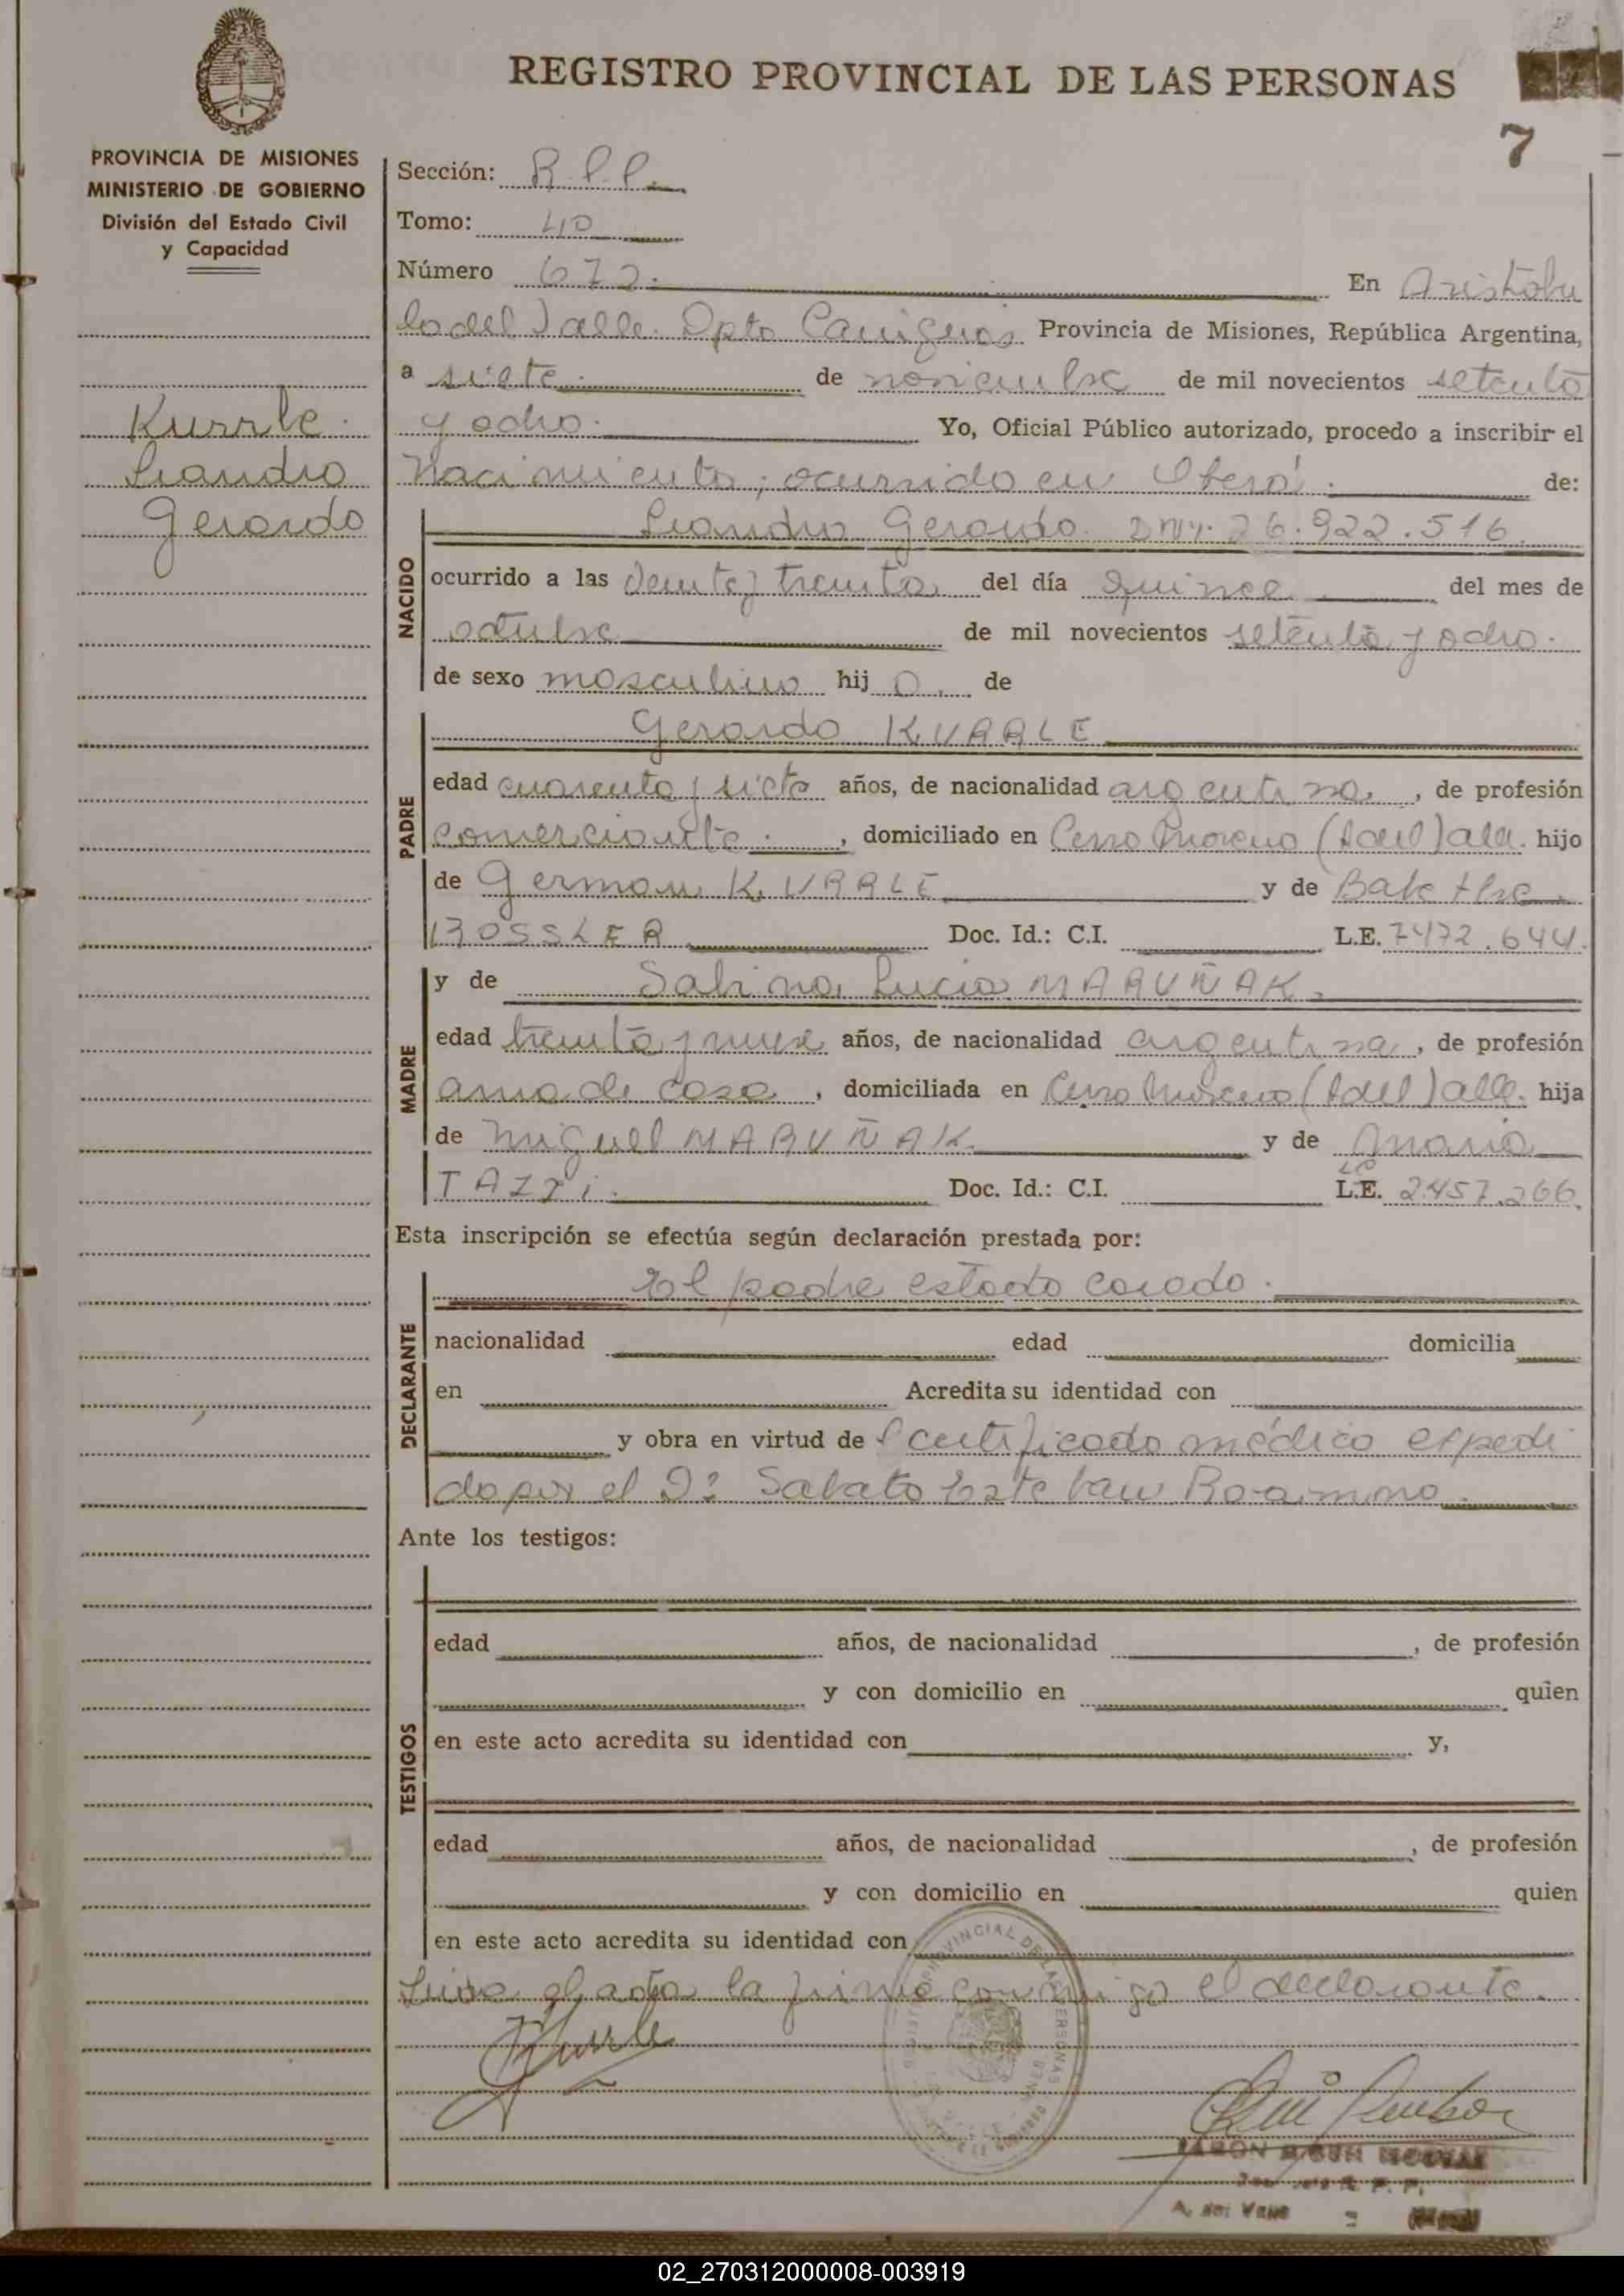 REGISTRO PROVINCIAL DE LAS PERSONAS
7
PROVINCIA DE MISIONES
MINISTERIO DE GOBIERNO
División del Estado Civil
y Capacidad
Kurrle
Leandro
Gerardo
Sección: R.P.P.
Tomo: 40
Número 672. En Aristóbu
lo del Valle. Dpto Cainguas Provincia de Misiones, República Argentina,
a siete de noviembre de mil novecientos setenta
y ocho. Yo, Oficial Público autorizado, procedo a inscribir el
Nacimiento; ocurrido en Oberá. de:
NACIDO
Leandro Gerardo. DNI. 26.922.516
ocurrido a las veinte y treinta del día quince del mes de
octubre de mil novecientos setenta y ocho.
de sexo masculino hij o. de
PADRE
Gerardo KURRLE
edad cuarenta y siete años, de nacionalidad argentina, de profesión
comerciante., domiciliado en Cerro Moreno (A del Valle. hijo
de German KURRLE y de
ROSSLER Doc. Id.: C.I. L.E. 7472.644.
MADRE
y de Sabina Lucia MARUÑAK.
edad treinta y nueve años, de nacionalidad argentina, de profesión
ama de casa, domiciliada en Cerro Moreno (A del Valle. hija
de Miguel MARUÑAK. y de Maria
Doc. Id.: C.I. LC L.E. 2.457.266
Esta inscripción se efectúa según declaración prestada por:
DECLARANTE
El padre estado casado.
nacionalidad edad domicilia
en Acredita su identidad con
y obra en virtud de l certificado médico expedi
do por el Dr Sabato Esteban
Ante los testigos:
TESTIGOS
edad años, de nacionalidad , de profesión
y con domicilio en quien
en este acto acredita su identidad con y,
edad años, de nacionalidad , de profesión
y con domicilio en quien
en este acto acredita su identidad con
Leida el acta la firma conmigo el declarante.
Kurrle
02_270312000008-003919